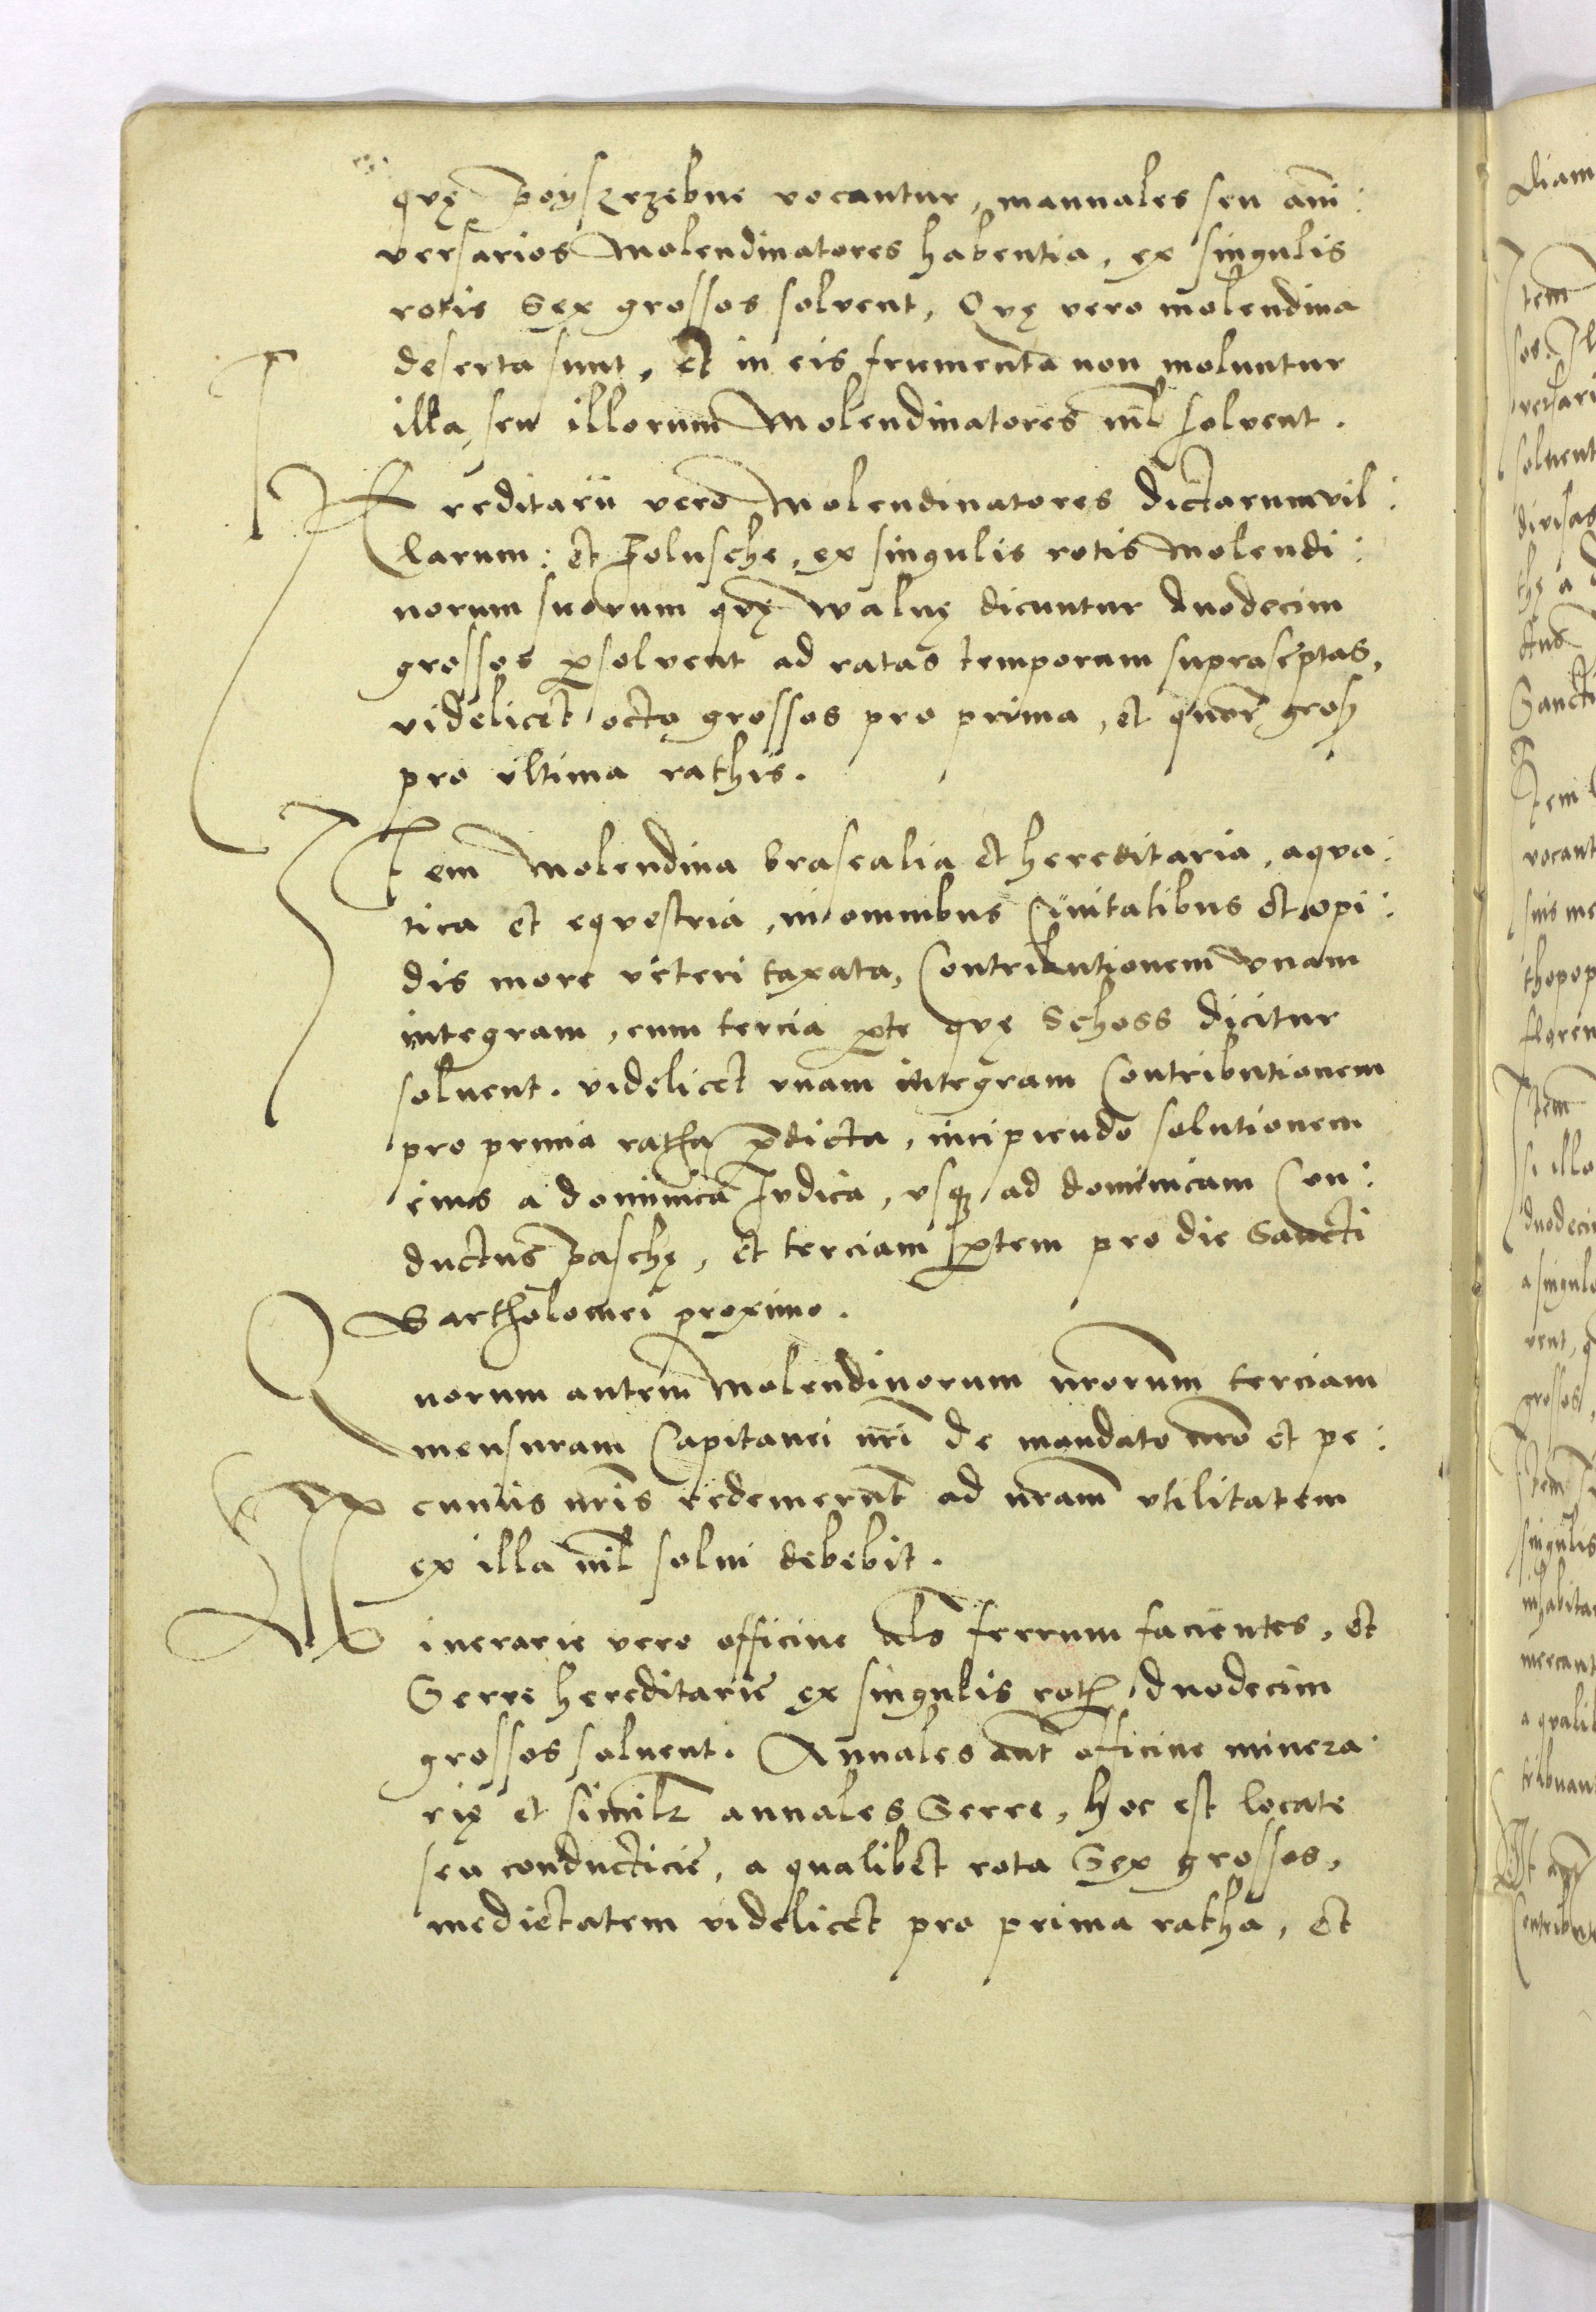 quę Poyszrzebne vocantur, mannales seu anni:
versarios Molendinatores habentia, ex singulis
rotis Sex grossos solvent, Quę vero molendina
deserta sunt, et in eis frumenta non moluntur
illa, seu illorum Molendinatores nil solvent.
Hereditarii vero Molendinatores dictarum vil:
larum: et Polusche, ex singulis rotis Molendi:
norum suorum quę walnę dicuntur duodecim
grossos persolvent ad ratas temporum suprascriptas,
videlicet octo grossos pro prima, et quatuor gross
pro ultima rathis.
Item Molendina brasealia et hereditaria, aqua:
tica et equestria, in omnibus Civitatibus et opi:
dis more veteri taxata, Contributionem unam
integram, cum tercia parte quę Schoss dicitur
soluent. videlicet unam integram Contributionem
pro prima ratha predicta, incipiendo solutionem
eius a dominica Iudica, usque ad dominicam Con:
ductus Paschę, et terciam partem pro die Sancti
Bartholomei proximo.
Quorum autem Molendinorum nrorum terciam
mensuram Capitanei nri de mandato nro et pe:
cuniis nris redemerunt ad nram utilitatem
ex illa nil solui debebit.
Minerarie vero officine als ferrum facientes, et
Serre hereditarie ex singulis roth duodecim
grossos soluent. Annales aut officine minera:
rię et similr annales Serre, hoc est locate
seu conducticie, a qualibet rota Sex grossos,
medietatem videlicet pro prima ratha, et